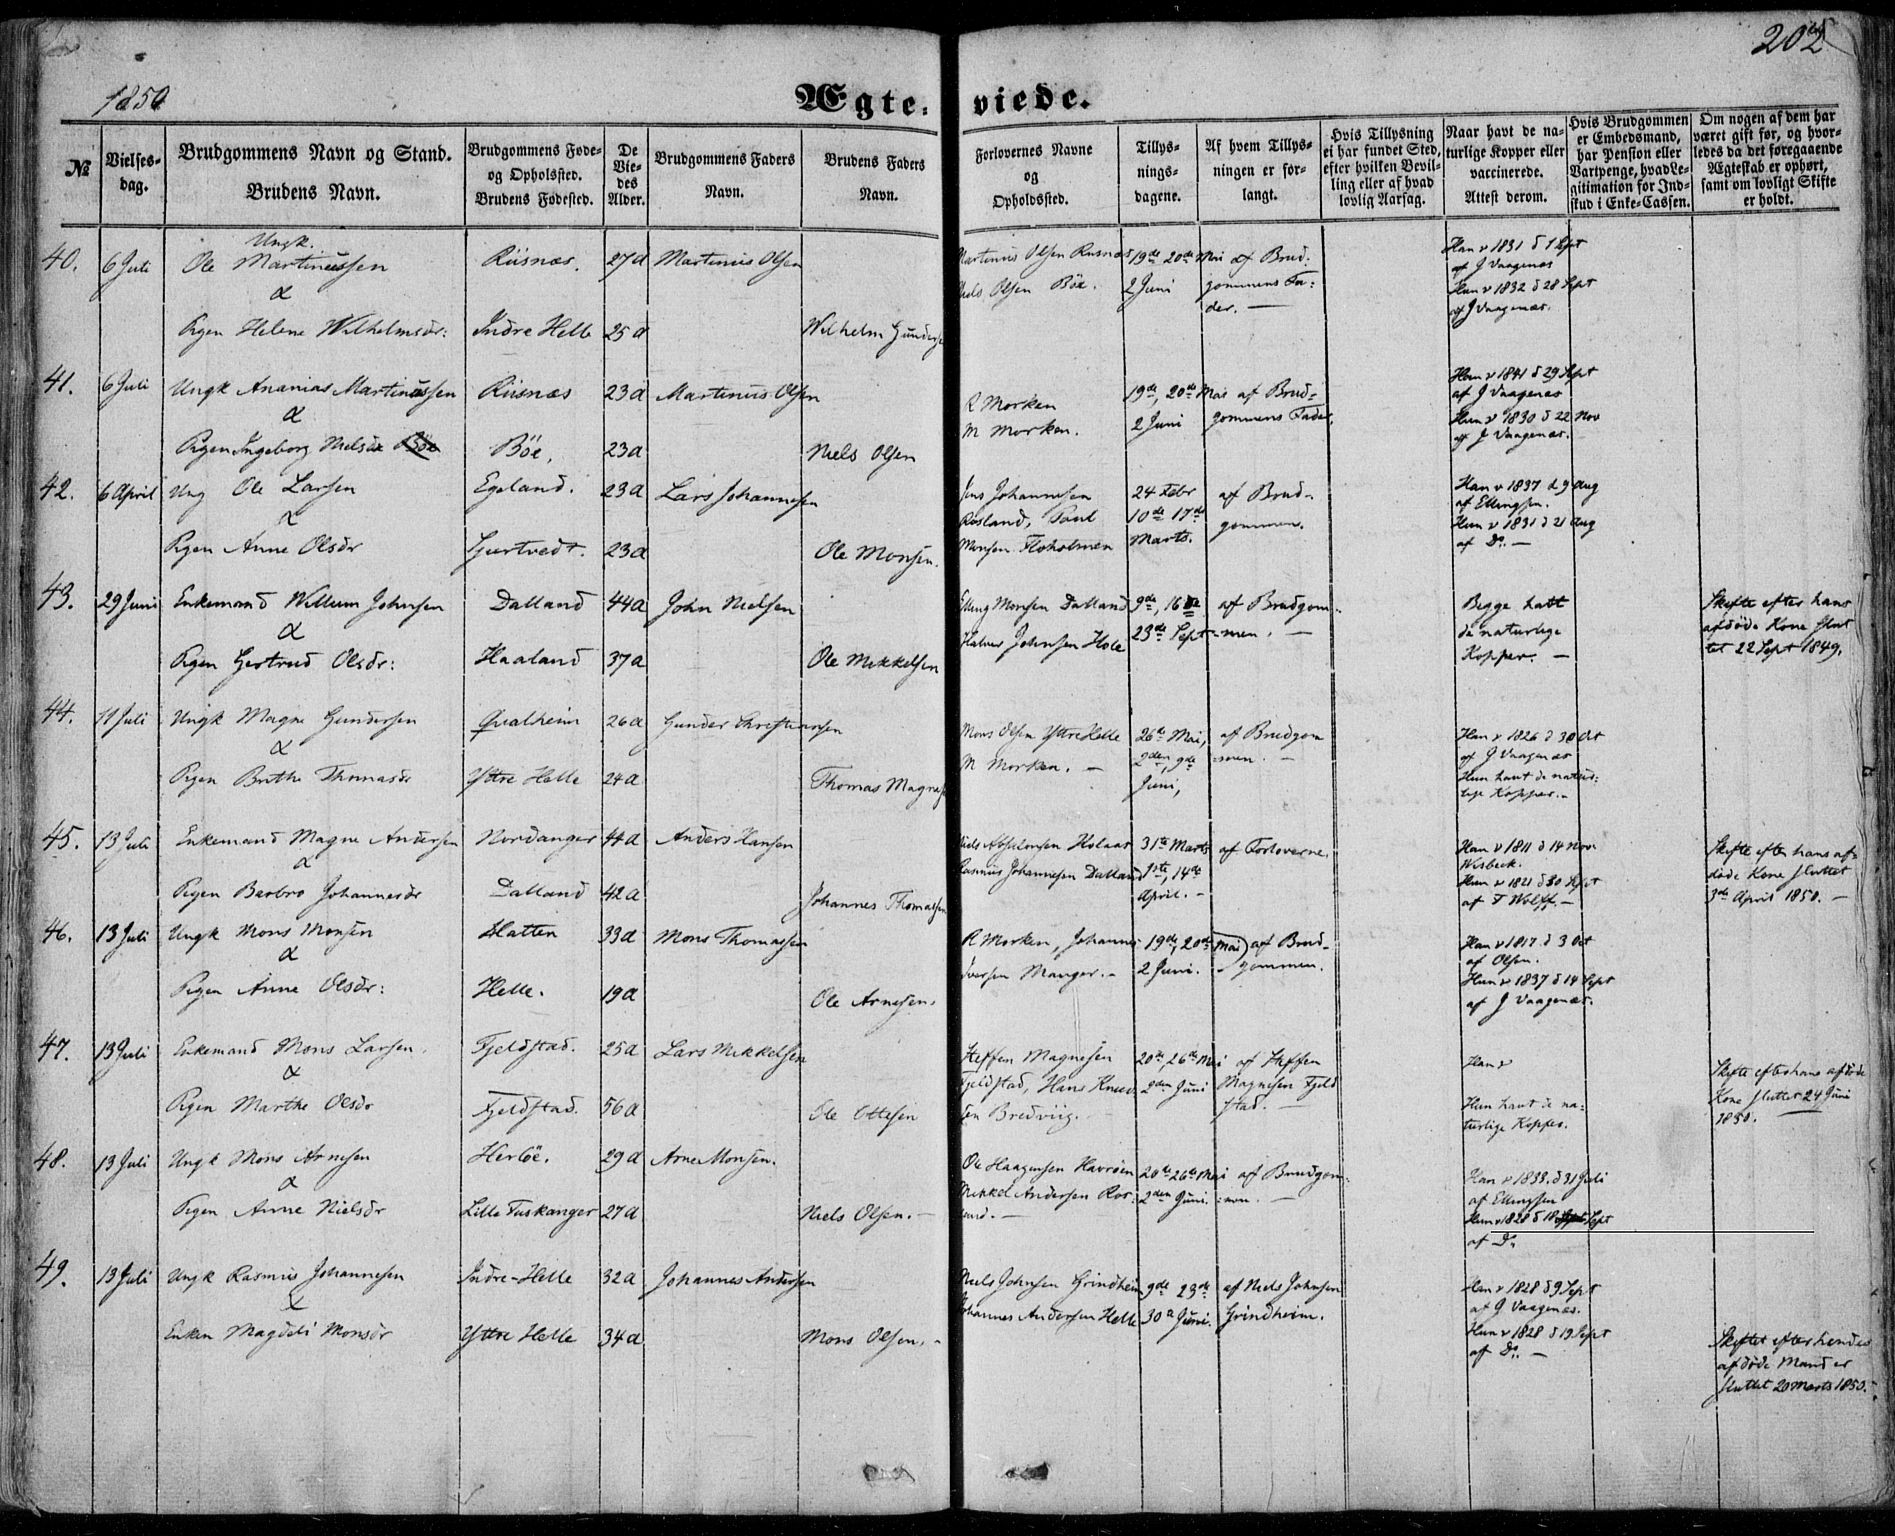 202
1850
Ægte-
viede.
№
Vielses-
dag.
Brudgommens Navn og Stand.
Brudens Navn.
Brudgommens Føde-
og Opholssted.
Brudens Fødested.
De
Vie-
des
Alder.
Brudgommens Faders
Navn.
Brudens Faders
Navn.
Forlovernes Navne
og
Opholdssted.
Tillys-
nings-
dagene.
Af hvem Tillys-
ningen er for-
langt.
Hvis Tillysning
ei har fundet Sted,
efter hvilken Bevil-
ling eller af hvad
lovlig Aarsag.
Naar havt de na-
turlige Kopper eller
vaccinerede.
Attest derom.
Hvis Brudgommen
er Embedsmand,
har Pension eller
Vartpenge, hvad Le-
gitimation for Ind-
skud i Enke-Cassen.
Om nogen af dem har
været gift før, og hvor-
ledes da det foregaaende
Ægteskab er ophørt,
samt om lovligt Skifte
er holdt.
40. 6 Juli
Ungk.
Ole Martinussen
&
Riisnæs. 27 a Martinus Olsen
Pigen Helene Wilhelmsdr: Indre Helle 25 a Wilhelm
Martinus Olsen Riisnæs 19de 20de Mai af Brud-
Niels Olsen Böe. 2 Juni gommens Fa-
der. —
Han v 1831 d 1 Sept
af J Vaagenæs
Hun v 1832 d 28 Sept
af J Vaagenæs.
41. 6 Juli Ungk Ananias Martinussen Riisnæs 23 a Martinus Olsen
&
Pigen Ingeborg Nielsdr Böe Böe. 23 a Niels Olsen
R Morken 19de, 20de Mai af Brud-
M Morken. 2 Juni gommens Fader.
Han v 1841 d 29 Sept
af J Vaagenæs
Hun v 1830 d 22 Nov
af J Vaagenæs.
42. 6 April Ung Ole Larsen Egeland. 23 a Lars Johannesen
&
Pigen Anne Olsdr 23 a Ole Monsen.
Jens Johannesen 24 Febr af Brud-
Røsland, Poul 10de 17de gommen.
Monsen Floholmen Marts.
Han v 1837 d 9 Aug
af Ellingsen.
Hun v 1831 d 21 Aug
af Do. —
43. 29 Juni Enkemand Willum Johnsen Dalland 44 a John Nielsen
&
Pigen Gertrud Olsdr: Haaland 37 a Ole Mikkelsen
Elling Monsen Dalland 9de, 16de af Brudgom-
Halvor Johnsen Hole 23de Sept -men. —
Begge havt
de naturlige
Kopper. —
Skifte efter hans
afdöde Kone slut
tet 22 Sept 1849.
44. 11 Juli Ungk Magne Gundersen Qvalheim 26 a Gunder Christiansen
&
Pigen Brithe Thomasdr Yttre Helle 24 a Thomas
Mons Olsen Yttre Helle 26de Mai, af Brudgom
M Morken. — 2den, 9de -men. —
Juni,
Han v 1826 d 30 Oct
af J Vaagenæs
Hun havt de natur-
lige Kopper. —
45. 13 Juli Enkemand Magne Andersen Nordanger 44 a Anders Hansen
&
Pigen Barbro Johannesdr Dalland 42 a Johannes Thomassen
Niels Absalonsen Holaas 31te Marts af Forloverne.
Rasmus Johannesen Dalland 1ste, 14de
April. —
Han v 1811 d 14 Nov
Wisbeck.
Hun v 1821 d 30 Sept
af F Wolff. —
Skifte efter hans af-
döde Kone sluttet
3de April 1850. —
46. 13 Juli Ungk Mons Monsen Hatten 33 a Mons Thomassen
&
Pigen Anne Olsdr: Helle. 19 a Ole Arnesen.
R Morken, Johannes 19de, 20de Mai af Brud-
Iversen Manger. — 2 Juni. gommen.
Han v 1817 d 3 Oct
af Olsen.
Hun v 1837 d 14 Sept
af J Vaagenæs.
47. 13 Juli Enkemand Mons Larsen. Fjeldstad. 25 a Lars Mikkelsen
&
Pigen Marthe Olsdr Fjeldstad. 56 a Ole Ottesen
Steffen Magnesen 20de, 26de Mai af Steffen
Fjeldstad, Hans Knud 2den Juni Magnesen Fjeld
sen Bredviig. stad. —
Han v
Hun havt de na-
turlige Kopper.
Skifte efter hans afdöde
Kone sluttet 24 Juni
1850.
48. 13 Juli Ungk Mons Arnesen Herlöe. 29 a Arne Monsen.
&
Pigen Anne Nielsdr Lille Fuskanger 27 a Niels Olsen. —
Ole Haagensen Havröen 20de 26de Mai af Brudgom-
Mikkel Andersen Ros- 2den Juni. -men. —
land. —
Han v 1833 d 31 Juli
af Ellingsen
Hun v 1828 d 18 Sept
af Do
49. 13 Juli Ungk Rasmus Johannesen Indre-Helle 32 a Johannes Andersen
&
Enken Magdeli Monsdr Yttre Helle 34 a Mons Olsen. -
Niels Johnsen Grindheim 9de 23de af Niels Johnsen
Johannes Andersen Helle 30 Juni. Grindheim.
Han v 1828 d 9 Sept
af J Vaagenæs.
Hun v 1828 d 19 Sept
af Do. —
Skiftet efter hendes
afdöde Mand er
sluttet 20 Marts 1850.